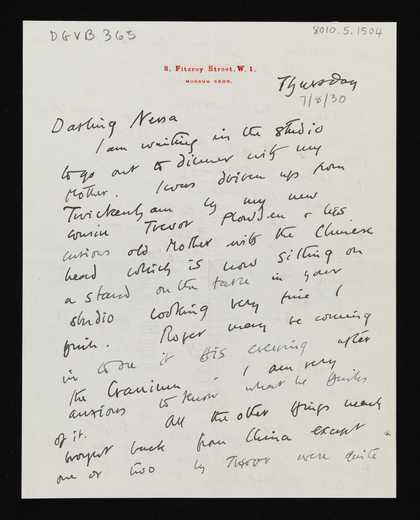 DGVB 365
8010.5.1504
8, Fitzroy Street, W. 1.
MUSEUM
Thursday
7/8/30
Darling Nessa
I am writing in the studio
to go out to dinner with my
Mother. I was driven up from
Twickenham by my new
cousin Trevor Plowden & his
curious old Mother with the Chinese
head which is now sitting on
a stand on the table in your
studio looking very fine I
think. Roger may be coming
in to see it this evening after
the Cranium. I am very
anxious to know what he thinks
of it. All the other things nearly
brought back from China except
one or two by Trevor were quite